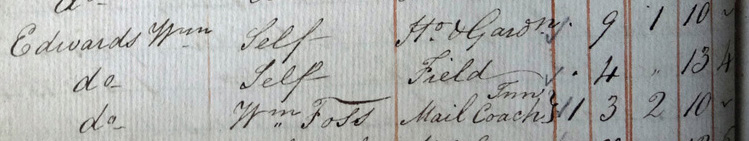 Edwards Wm Self Ho & Gardn 9 1 10
do Self Field 4 " 13 4
do Wm Foss Mail Coach Inn 1 3 2 10